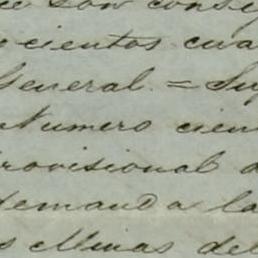 son consig
cientos cua
General. = Su
Numero cien
rovisional d
demanda la
s Minas del